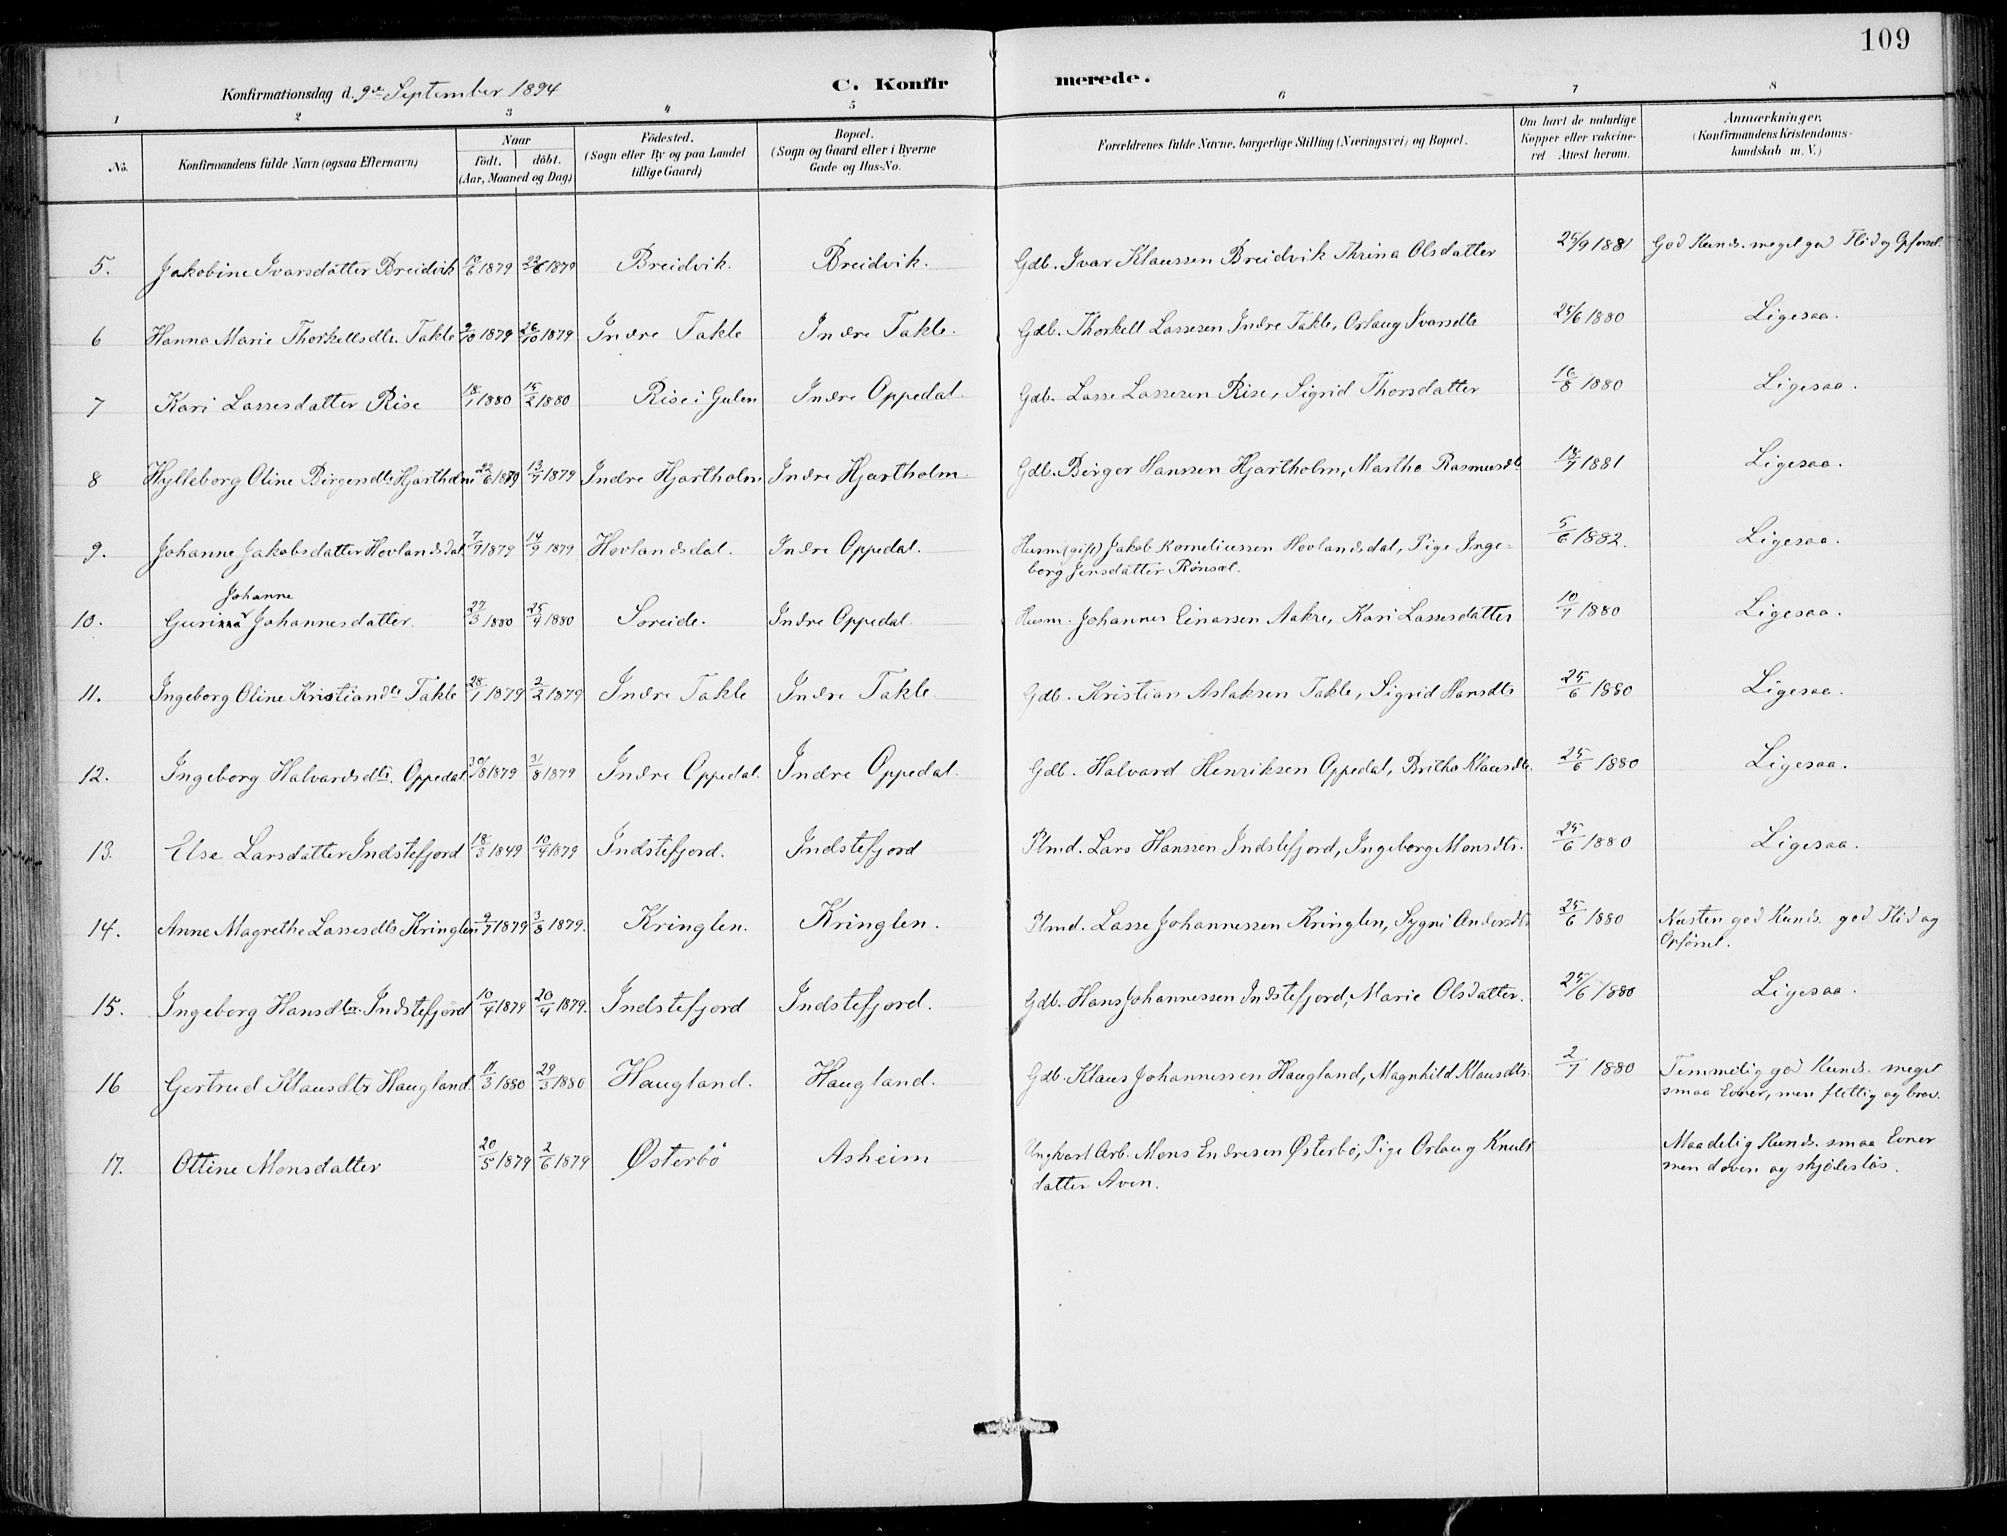 109
Konfirmationsdag d. 9de September 1894
C. Konfirmerede.
1 2 3 4 5 6 7 8
No.
Konfirmandens fulde Navn (ogsaa Efternavn)
Naar
födt. | döbt.
(Aar, Maaned og Dag)
Födested.
(Sogn eller By og paa Landet
tillige Gaard)
Bopæl.
(Sogn og Gaard eller i Byerne
Gade og Hus-No.
Forældrenes fulde Navne, borgerlige Stilling (Næringsvei) og Bopæl.
Om havt de naturlige
Kopper eller vakcine-
ret Attest herom.
Anmærkninger.
(Konfirmandens Kristendoms-
kundskab m. V.)
5. Jakobine Ivarsdatter Breidvik 1879 1879 Breidvik. Breidvik. Gdb. Ivar Klaussen Breidvik Thrina Olsdatter 25/9 1881 God Kunds. meget god Flid og Opførsel.
6 Hanna Marie Thorkellsdtr. Takle 9/10 1879 26/10 1879 Indre Takle Indre Takle. Gdb. Thorkell Lassesen Indre Takle, Orlaug Ivarsdtr 25/6 1880 Ligesaa.
7 Kari Lassesdatter Rise 18/1 1880 15/2 1880 Rise i Gulen Indre Oppedal. Gdb. Lasse Lassesen Rise, Sigrid Thorsdatter 16/8 1880 Ligesaa.
8 Hylleborg Oline Birgersdtr Hjartholm 1879 13/7 1879 Indre Hjartholm Indre Hjartholm. Gdb. Birger Hanssen Hjartholm, Martha Rasmusdtr 18/7 1881 Ligesaa.
9. Johanne Jakobsdatter Hovlandsdal 7/9 1879 14/9 1879 Hovlandsdal. Indre Oppedal. Husm (gift) Jakob Korneliussen Hovlandsdal, Pige Inge-
borg Jensdatter Rønset. 5/6 1882. Ligesaa.
Johanne
10. Gurinna Johannesdatter. 27/3 1880 25/4 1880 Søreide. Indre Oppedal. Husm. Johannes Einarsen Aakre, Kari Lassesdatter 10/7 1880 Ligesaa.
11. Ingeborg Oline Kristiandtr Takle 28/1 1879 2/2 1879 Indre Takle Indre Takle Gdb. Kristian Aslaksen Takle, Sigrid Hansdtr 25/6 1880 Ligesaa.
12. Ingeborg Halvardsdtr. Oppedal 30/8 1879 31/8 1879 Indre Oppedal. Indre Oppedal. Gdb. Halvard Henriksen Oppedal, Britha Klausdtr. 25/6 1880 Ligesaa.
13. Else Larsdatter Indstefjord 18/3 1849 10/4 1879 Indstefjord. Indstefjord Plmd. Lars Hanssen Indstefjord, Ingeborg Monsdtr. 25/6 1880 Ligesaa.
14. Anne Magrethe Lassesdtr Kringlen 9/7 1879 3/8 1879. Kringlen. Kringlen. Plmd. Lasse Johannessen Kringlen, Sygni Andersdtr 25/6 1880 Næsten god Kunds. god Flid og
Opførsel.
15. Ingeborg Hansdtr. Indstefjord 10/4 1879 20/4 1879. Indstefjord Indstefjord. Gdb. Hans Johannessen Indstefjord, Marie Olsdatter. 25/6 1880 Ligesaa.
16 Gertrud Klausdtr Haugland. 11/3 1880 29/3 1880 Haugland. Haugland. Gdb. Klaus Johannessen Haugland, Magnhild Klausdtr. 2/7 1880 Temmelig god Kunds. meget
smaa Evner, men flittig og brav.
17. Ottine Monsdatter 20/5 1879 2/6 1879 Østerbö Asheim Ungkarl Arb. Mons Endresen Østerbö, Pige Orlaug Knuts
datter Aven. Maadelig Kunds. smaa Evner
men doven og skjødesløs.